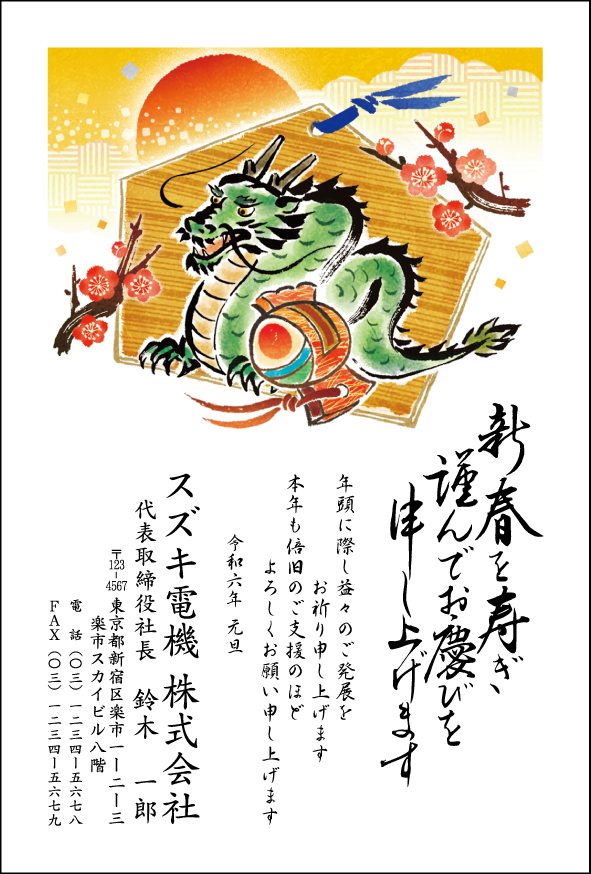 新春を寿ぎ、
謹んでお慶びを
申し上げます
年頭に際し益々のご発展を
お祈り申し上げます
本年も倍旧のご支援のほど
よろしくお願い申し上げます
令和六年 元旦
スズキ電機 株式会社
代表取締役社長 鈴木 一郎
〒123-4567 東京都新宿区楽市一ー二ー三
楽市スカイビル八階
電 話(〇三)一二三四ー五六七八
FAX(〇三)一二三四ー五六七九